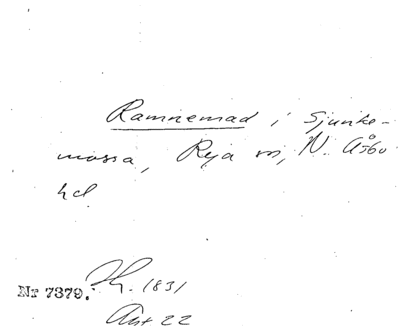 Ramnemad i Sjunke-
mossa, Rya sn, N. Åsbo
hd
Nr 7379. 1831
Akt 22